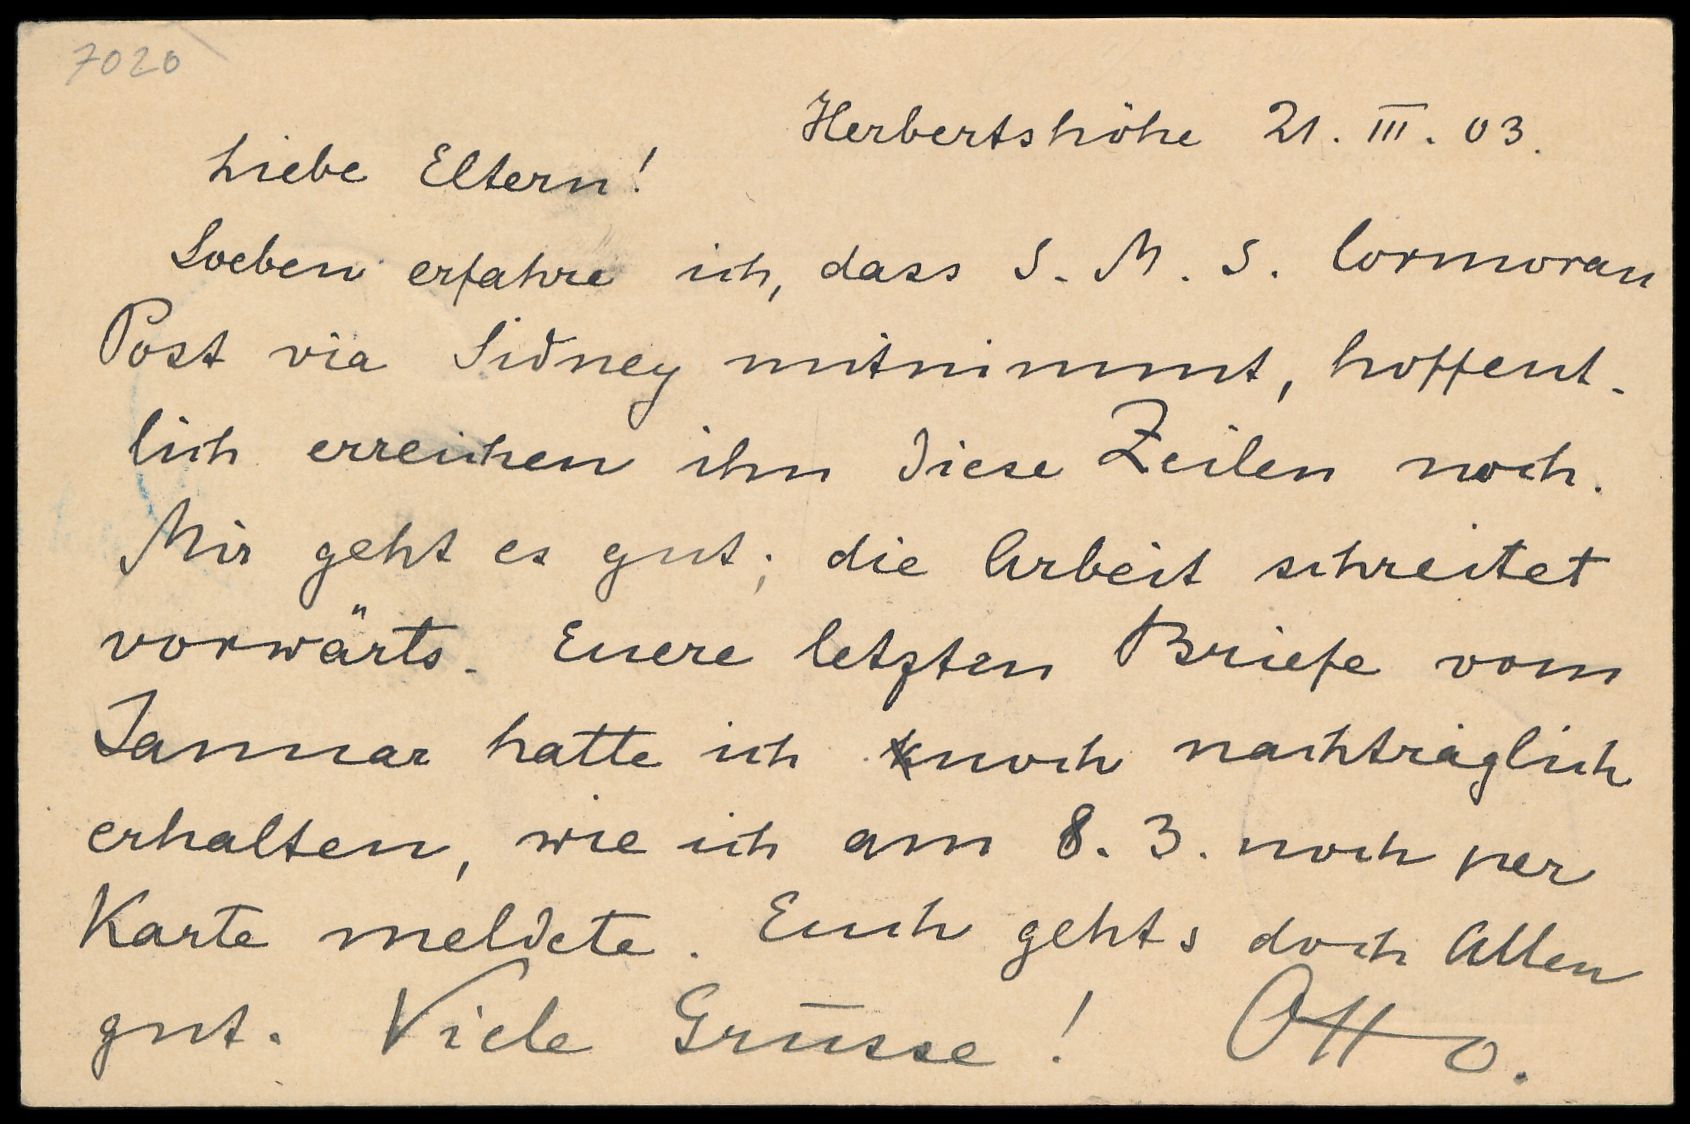 7020
Herbertshöhe 21. III. 03.
Liebe Eltern!
Soeben erfahre ich, dass S. M. S. Cormoran
Post via Sidney mitnimmt, hoffent-
lich erreichen ihn diese Zeilen noch.
Mir geht es gut; die Arbeit schreitet
vorwärts. Euere letzten Briefe vom
Januar hatte ich noch nachträglich
erhalten, wie ich am 8. 3. noch per
Karte meldete. Euch gehts doch Allen
gut. Viele Grüsse! Otto.